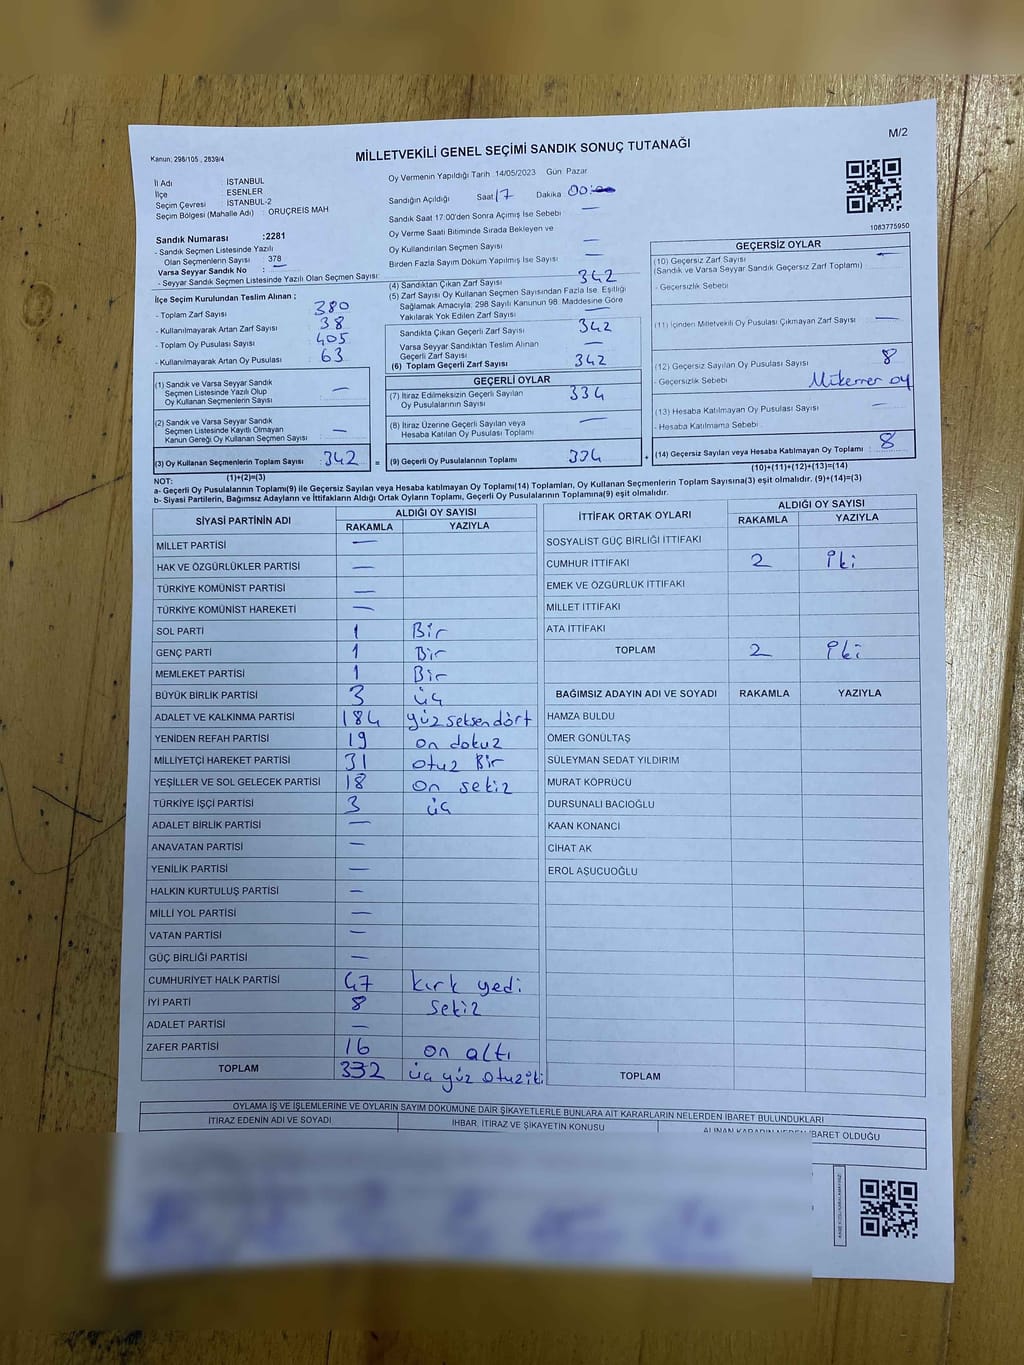 M/2
Kanun; 298/105 , 2839/4
MİLLETVEKİLİ GENEL SEÇİMİ SANDIK SONUÇ TUTANAĞI
İl Adı : İSTANBUL
İlçe : ESENLER
Seçim Çevresi : İSTANBUL-2
Seçim Bölgesi (Mahalle Adı) : ORUÇREİS MAH
Sandık Numarası :2281
- Sandık Seçmen Listesinde Yazılı
Olan Seçmenlerin Sayısı 378
Varsa Seyyar Sandık No : —
- Seyyar Sandık Seçmen Listesinde Yazılı Olan Seçmen Sayısı:
İlçe Seçim Kurulundan Teslim Alınan ;
- Toplam Zarf Sayısı 380
- Kullanılmayarak Artan Zarf Sayısı 38
- Toplam Oy Pusulası Sayısı 405
- Kullanılmayarak Artan Oy Pusulası 63
(1) Sandık ve Varsa Seyyar Sandık
Seçmen Listesinde Yazılı Olup
Oy Kullanan Seçmenlerin Sayısı : —
(2) Sandık ve Varsa Seyyar Sandık
Seçmen Listesinde Kayıtlı Olmayan
Kanun Gereği Oy Kullanan Seçmen Sayısı : —
(3) Oy Kullanan Seçmenlerin Toplam Sayısı 342
(1)+(2)=(3)
Oy Vermenin Yapıldığı Tarih :14/05/2023 Gün Pazar
Sandığın Açıldığı Saat 17 Dakika 00
Sandık Saat 17:00'den Sonra Açımış İse Sebebi : —
Oy Verme Saati Bitiminde Sırada Bekleyen ve
Oy Kullandırılan Seçmen Sayısı —
Birden Fazla Sayım Döküm Yapılmış İse Sayısı —
(4) Sandıktan Çıkan Zarf Sayısı 342
(5) Zarf Sayısı Oy Kullanan Seçmen Sayısından Fazla İse, Eşitliği
Sağlamak Amacıyla; 298 Sayılı Kanunun 98. Maddesine Göre
Yakılarak Yok Edilen Zarf Sayısı —
Sandıkta Çıkan Geçerli Zarf Sayısı 342
Varsa Seyyar Sandıktan Teslim Alınan
Geçerli Zarf Sayısı —
(6) Toplam Geçerli Zarf Sayısı 342
GEÇERLİ OYLAR
(7) İtiraz Edilmeksizin Geçerli Sayılan
Oy Pusulalarının Sayısı 334
(8) İtiraz Üzerine Geçerli Sayılan veya
Hesaba Katılan Oy Pusulası Toplamı —
= (9) Geçerli Oy Pusulalarının Toplamı 334 +
1083775950
GEÇERSİZ OYLAR
(10) Geçersiz Zarf Sayısı —
(Sandık ve Varsa Seyyar Sandık Geçersiz Zarf Toplamı)
- Geçersizlik Sebebi
(11) İçinden Milletvekili Oy Pusulası Çıkmayan Zarf Sayısı —
(12) Geçersiz Sayılan Oy Pusulası Sayısı 8
- Geçersizlik Sebebi Mükerrer oy
(13) Hesaba Katılmayan Oy Pusulası Sayısı —
- Hesaba Katılmama Sebebi
(14) Geçersiz Sayılan veya Hesaba Katılmayan Oy Toplamı 8
(10)+(11)+(12)+(13)=(14)
NOT:
a- Geçerli Oy Pusulalarının Toplamı(9) ile Geçersiz Sayılan veya Hesaba katılmayan Oy Toplamı(14) Toplamları, Oy Kullanan Seçmenlerin Toplam Sayısına(3) eşit olmalıdır. (9)+(14)=(3)
b- Siyasi Partilerin, Bağımsız Adayların ve İttifakların Aldığı Ortak Oyların Toplamı, Geçerli Oy Pusulalarının Toplamına(9) eşit olmalıdır.
SİYASİ PARTİNİN ADI ALDIĞI OY SAYISI
RAKAMLA YAZIYLA
MİLLET PARTİSİ —
HAK VE ÖZGÜRLÜKLER PARTİSİ —
TÜRKİYE KOMÜNİST PARTİSİ —
TÜRKİYE KOMÜNİST HAREKETİ —
SOL PARTİ 1 Bir
GENÇ PARTİ 1 Bir
MEMLEKET PARTİSİ 1 Bir
BÜYÜK BİRLİK PARTİSİ 3 üç
ADALET VE KALKINMA PARTİSİ 184 yüz seksen dört
YENİDEN REFAH PARTİSİ 19 on dokuz
MİLLİYETÇİ HAREKET PARTİSİ 31 otuz Bir
YEŞİLLER VE SOL GELECEK PARTİSİ 18 on sekiz
TÜRKİYE İŞÇİ PARTİSİ 3 üç
ADALET BİRLİK PARTİSİ —
ANAVATAN PARTİSİ —
YENİLİK PARTİSİ —
HALKIN KURTULUŞ PARTİSİ —
MİLLİ YOL PARTİSİ —
VATAN PARTİSİ —
GÜÇ BİRLİĞİ PARTİSİ —
CUMHURİYET HALK PARTİSİ 47 kırk yedi
İYİ PARTİ 8 sekiz
ADALET PARTİSİ —
ZAFER PARTİSİ 16 on altı
TOPLAM 332 üç yüz otuz iki
İTTİFAK ORTAK OYLARI ALDIĞI OY SAYISI
RAKAMLA YAZIYLA
SOSYALİST GÜÇ BİRLİĞİ İTTİFAKI
CUMHUR İTTİFAKI 2 iki
EMEK VE ÖZGÜRLÜK İTTİFAKI
MİLLET İTTİFAKI
ATA İTTİFAKI
TOPLAM 2 iki
BAĞIMSIZ ADAYIN ADI VE SOYADI RAKAMLA YAZIYLA
HAMZA BULDU
ÖMER GÖNÜLTAŞ
SÜLEYMAN SEDAT YILDIRIM
MURAT KÖPRÜCÜ
DURSUNALİ BACIOĞLU
KAAN KONANCİ
CİHAT AK
EROL AŞUCUOĞLU
TOPLAM
OYLAMA İŞ VE İŞLEMLERİNE VE OYLARIN SAYIM DÖKÜMÜNE DAİR ŞİKAYETLERLE BUNLARA AİT KARARLARIN NELERDEN İBARET BULUNDUKLARI
İTİRAZ EDENİN ADI VE SOYADI İHBAR, İTİRAZ VE ŞİKAYETİN KONUSU ALINAN KARARIN NEDEN İBARET OLDUĞU